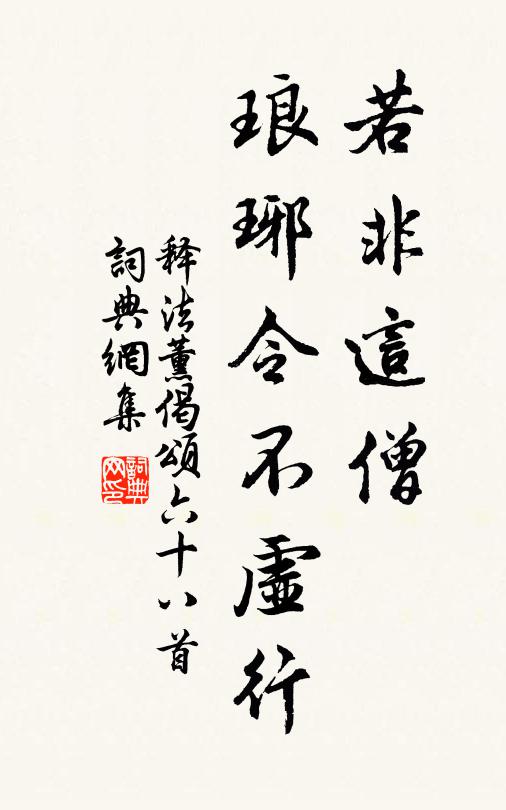 若非這僧
瑯琊令不虛行
释法薰偈頌六十八首
詞典網集
詞典网印